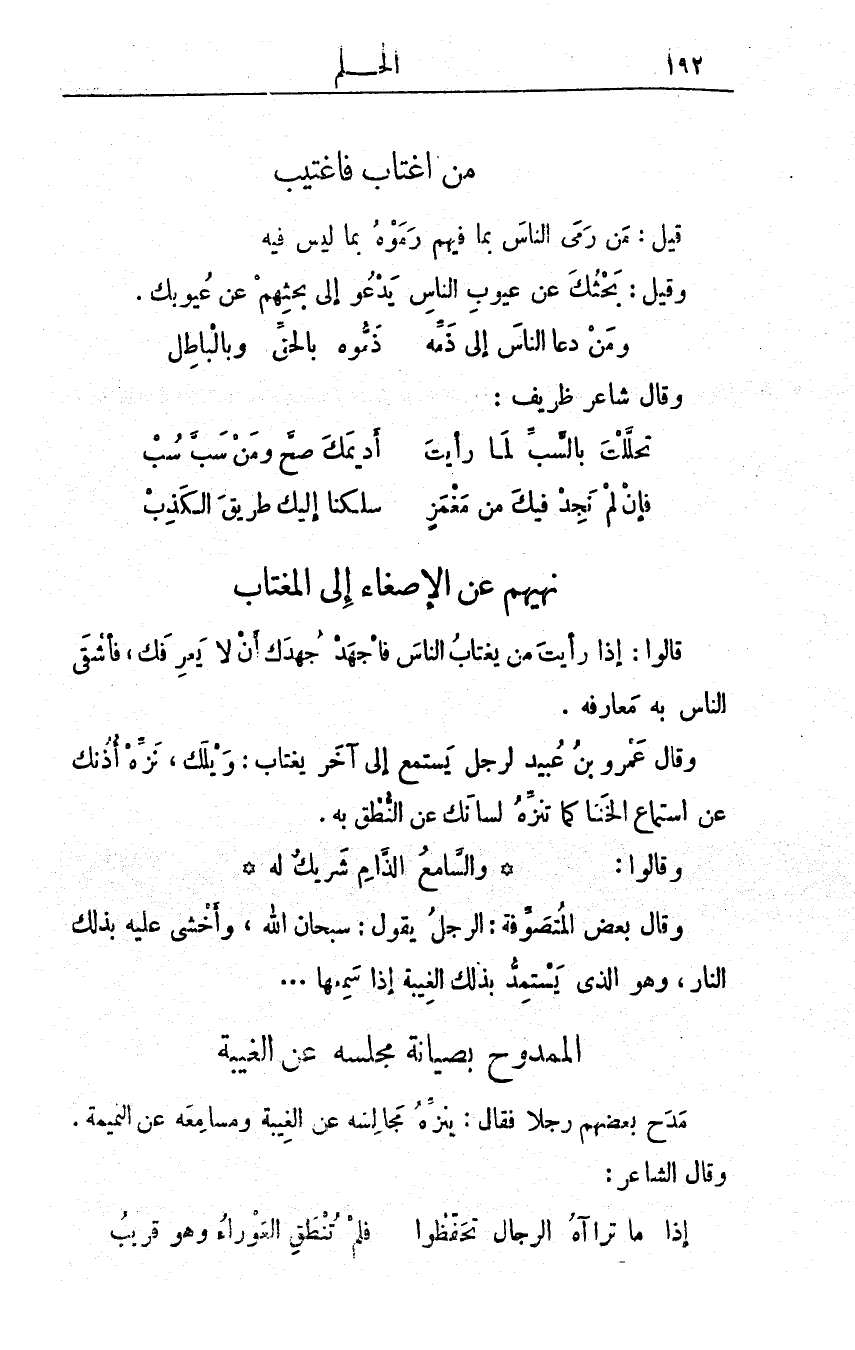 ١٩٢ الحلم
من اغتاب فاغتيب
قيل : مَن رَمَى الناسَ بما فيهم رَمَوْهُ بما ليس فيه
وقيل : بَحْثُكَ عن عيوبِ الناسِ يَدْعُو إلى بحثِهِمْ عن عُيوبك .
ومَنْ دعا الناسَ إلى ذَمِّه ذَمُّوه بالحقِّ وبالْباطِل
وقال شاعر ظريف :
تحلَّلْتَ بالسَّبِّ لمَا رأيتَ أديمَكَ صحَّ ومَنْ سَبَّ سُبْ
فإنْ لمْ نَجِدْ فيكَ من مَغْمَزٍ سلكنا إليك طريقَ الكَذِبْ
نهيهم عن الإصغاء إلى المغتاب
قالوا : إذا رأيتَ من يغتابُ الناسَ فاجْهَدْ جُهدَك أنْ لا يَعرِفَك ، فأشْقَى
الناس به مَعارفه .
وقال عَمْرو بنُ عُبيد لرجل يَستمع إلى آخَر يغتاب : وَيْلَك ، نَزِّهْ أُذُنك
عن استماع الخَنَا كما تنزِّهُ لسانَك عن النُّطْق به .
وقالوا : * والسَّامعُ الذَّامِ شَريكٌ له *
وقال بعض المُتصَوِّفة : الرجلُ يقول : سبحان الله ، وأَخْشى عليه بذلك
النار ، وهو الذى يَسْتمِدُّ بذلك الغِيبة إذا سَمِعها ...
الممدوح بصيانة مجلسه عن الغيبة
مَدَح بعضهم رجلا فقال : ينزِّهُ مَجالِسَه عن الغِيبة ومسامِعَه عن النميمة .
وقال الشاعر :
إذا ما تراآهُ الرجال تحَفّظوا فلمْ تُنْطَقِ العَوْراءُ وهو قريبُ